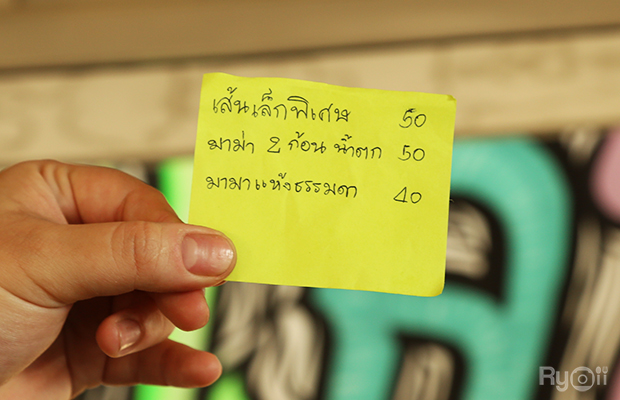 เส้นเล็กพิเศษ 50
มาม่า 2 ก้อน น้ำตก 50
มามาแห้งธรรมดา 40
Ryoii